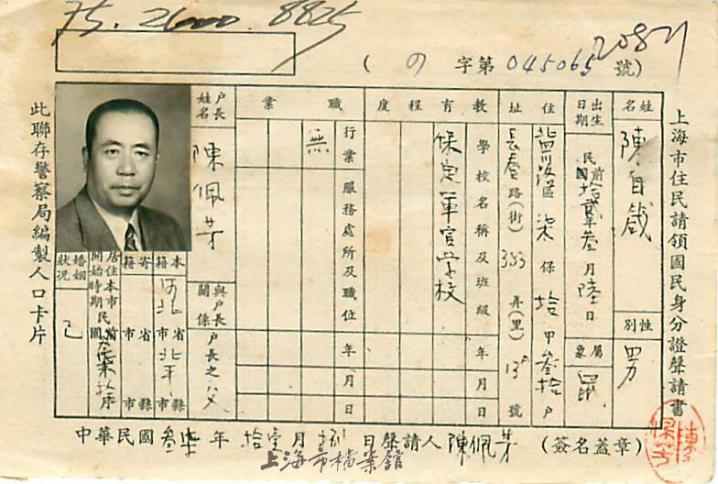 75. 2600. 8825
2087
( 字第 045065 號)
上海市住民請領國民身分證聲請書
姓名 陳自
性別 男
出生日期 民國前拾貳年叁月陸日
屬象 鼠
住址 區 柒 保 拾 甲 叁拾 戶
長春路(街) 353 弄(里) 13 號
教育程度
學校名稱及班級 年 月 日
保定軍官學校
職業
行業 服務處所及職位 年 月 日
無
戶長姓名 陳佩芽
與戶長關係 戶長之父
本籍 河北 省市 北平 縣市
寄籍 省市 縣市
居住本市開始時期 民國前
婚姻狀況 已
此聯存警察局編製人口卡片
中華民國叁柒年拾壹月 日聲請人 陳佩芽 (簽名蓋章)
上海市檔案館